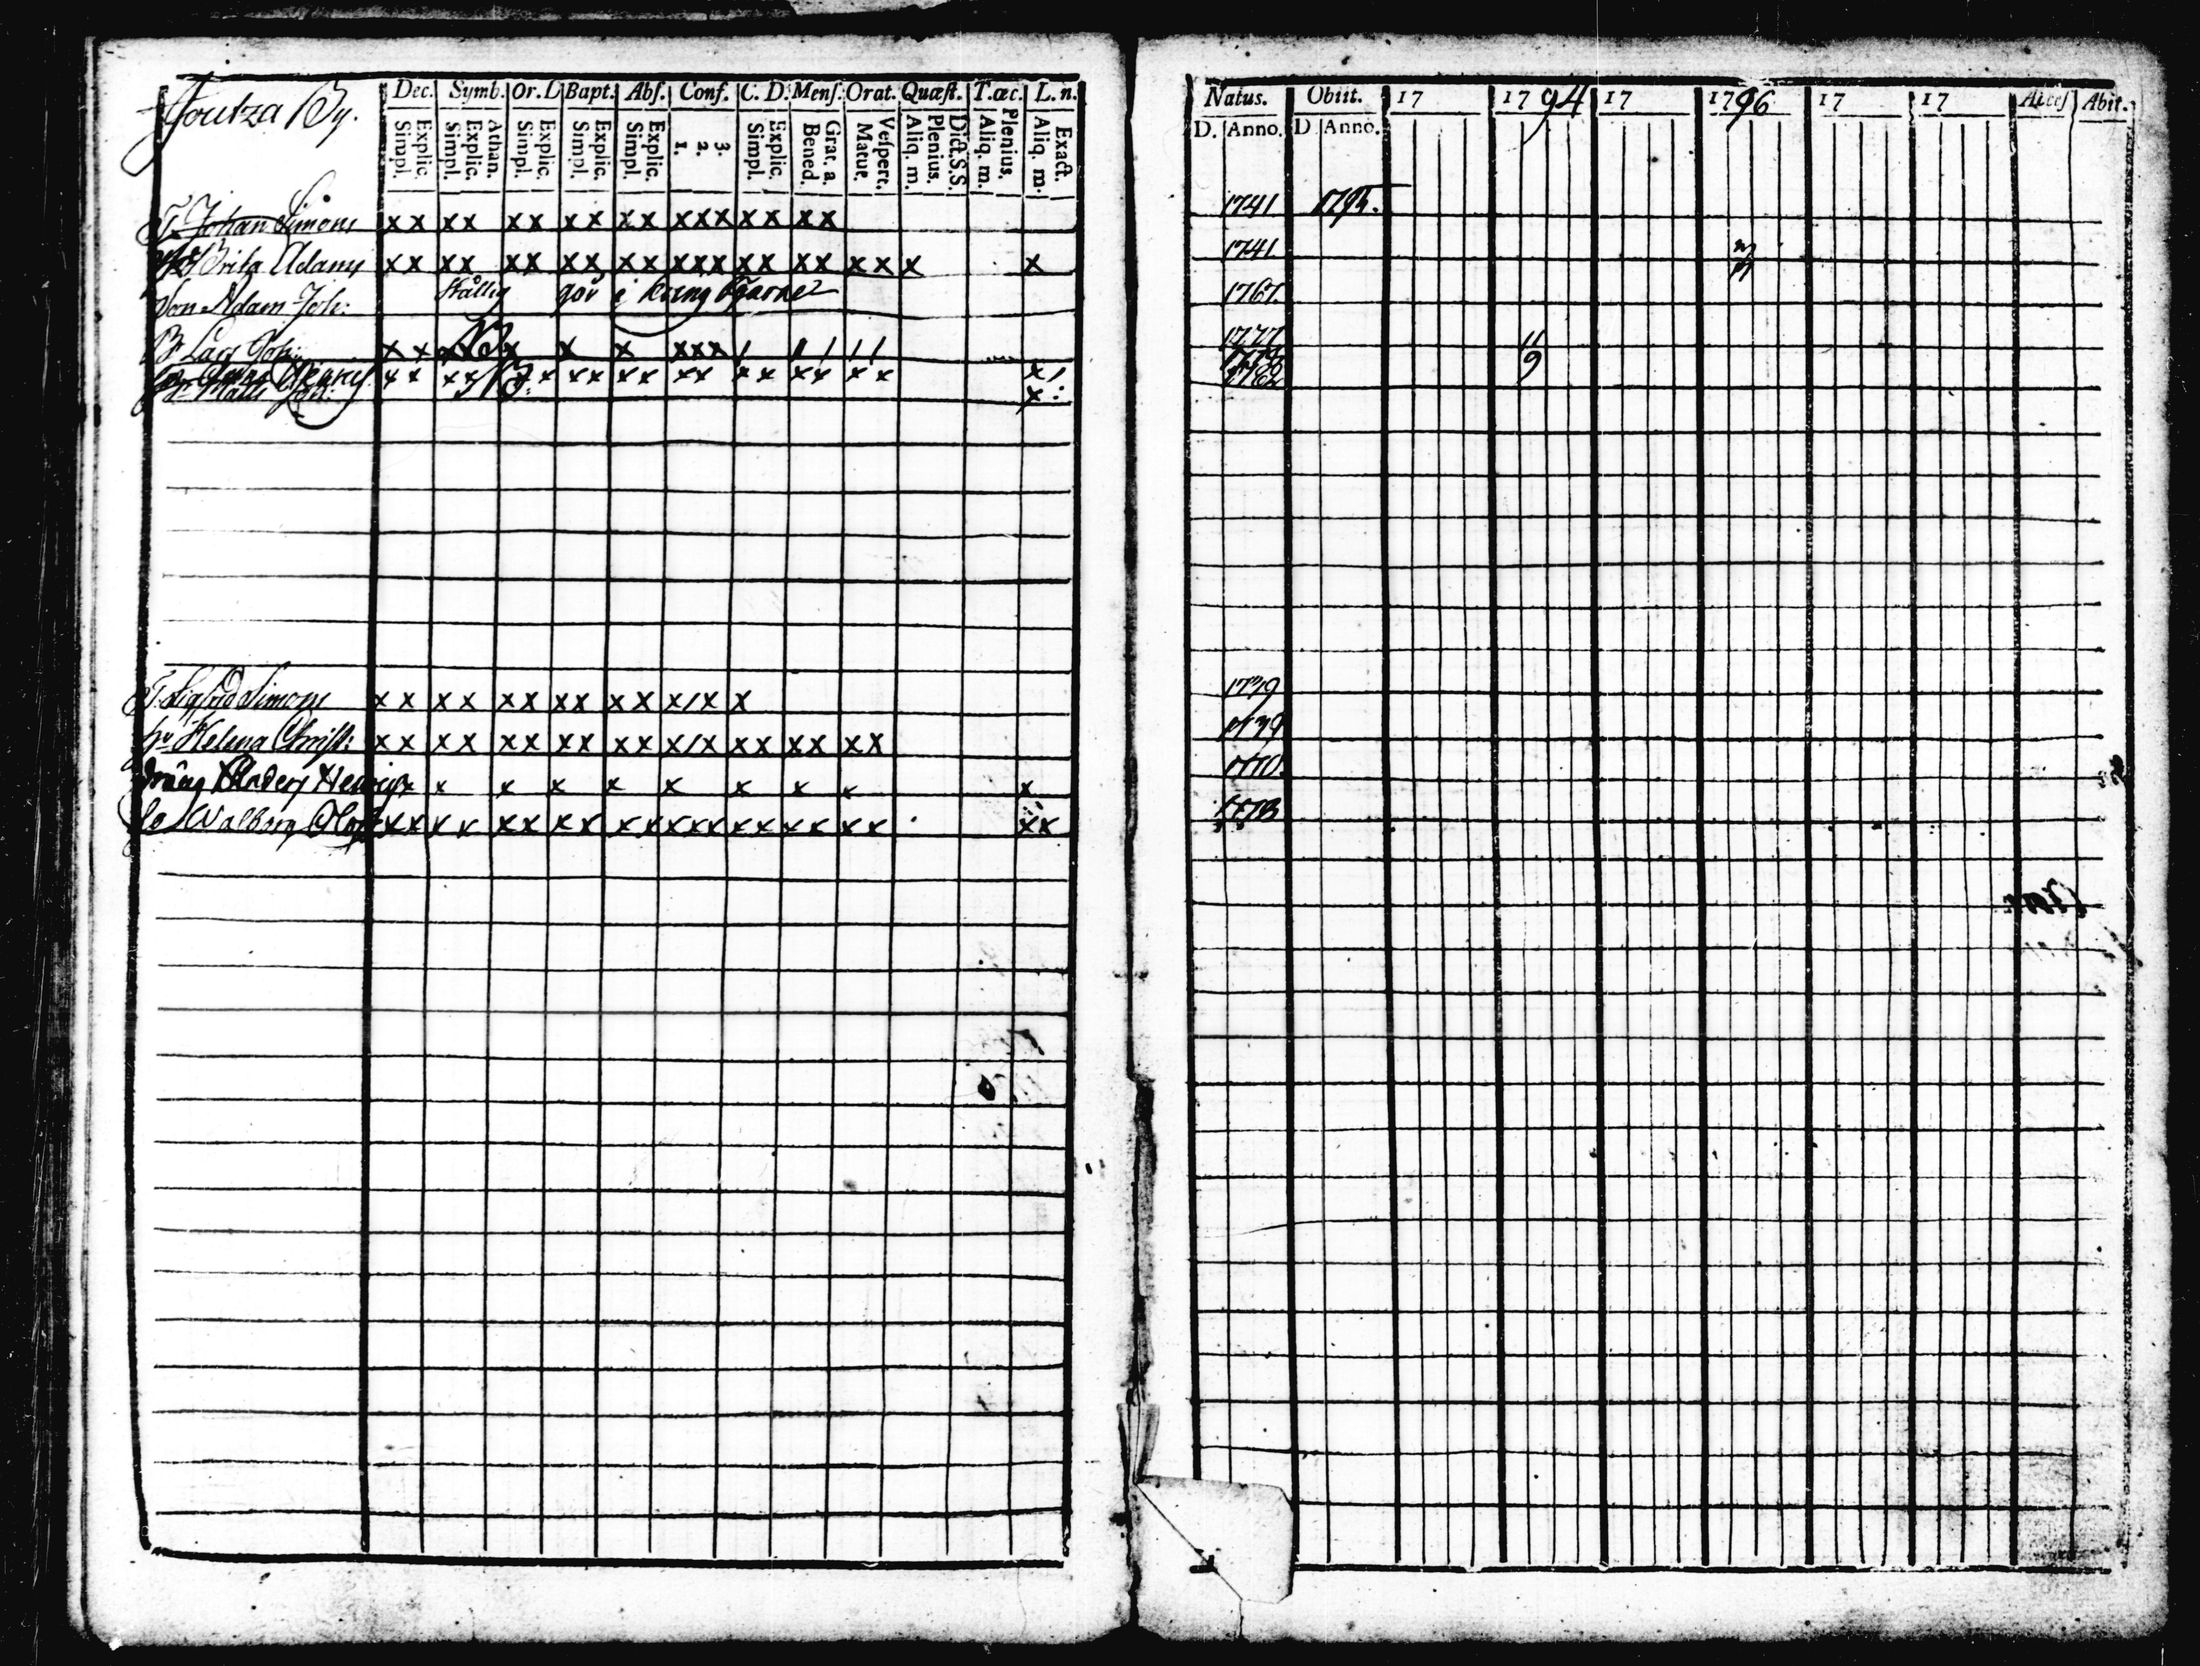 Joutza By.
Dec. Symb. Or. D Bapt. Abs. Conf. C. D. Mens. Orat. Quæst. T. œc. L. n.
Explic. Simpl. Athan. Explic. Simpl. Explic. Simpl. Explic. Simpl. Explic. Simpl. 3. 2. 1. Explic. Simpl. Grat. a. Bened. Vespert. Matut. Dict. S.S. Plenius. Aliq. m. Plenius. Aliq. m. Exact. Aliq. m.
Natus. Obiit. 17 1794 17 1796 17 17 Access Abit.
D. Anno. D Anno.
T. Johan Simons x x x x x x x x x x x x x x x x x 1741
Brita Adams x x x x x x x x x x x x x x x x x x x x x 1741
Son Adam Joh: Stållig gör i kring gårdar 1767.
Lars Joh: x x x x x x x x x / / / / / 1777
NB. Matts Joh: x x x x x x x x x x x x x x x x x x x / 11 9
T. Sigfrid Simons x x x x x x x x x x x / x x 1739
hu Helena Christ: x x x x x x x x x x x / x x x x x x x 1739
dräng Anders Henrics x x x x x x x x x x 1770.
Walborg Olofs x x x x x x x x x x x x x x x x x x x x x 1773